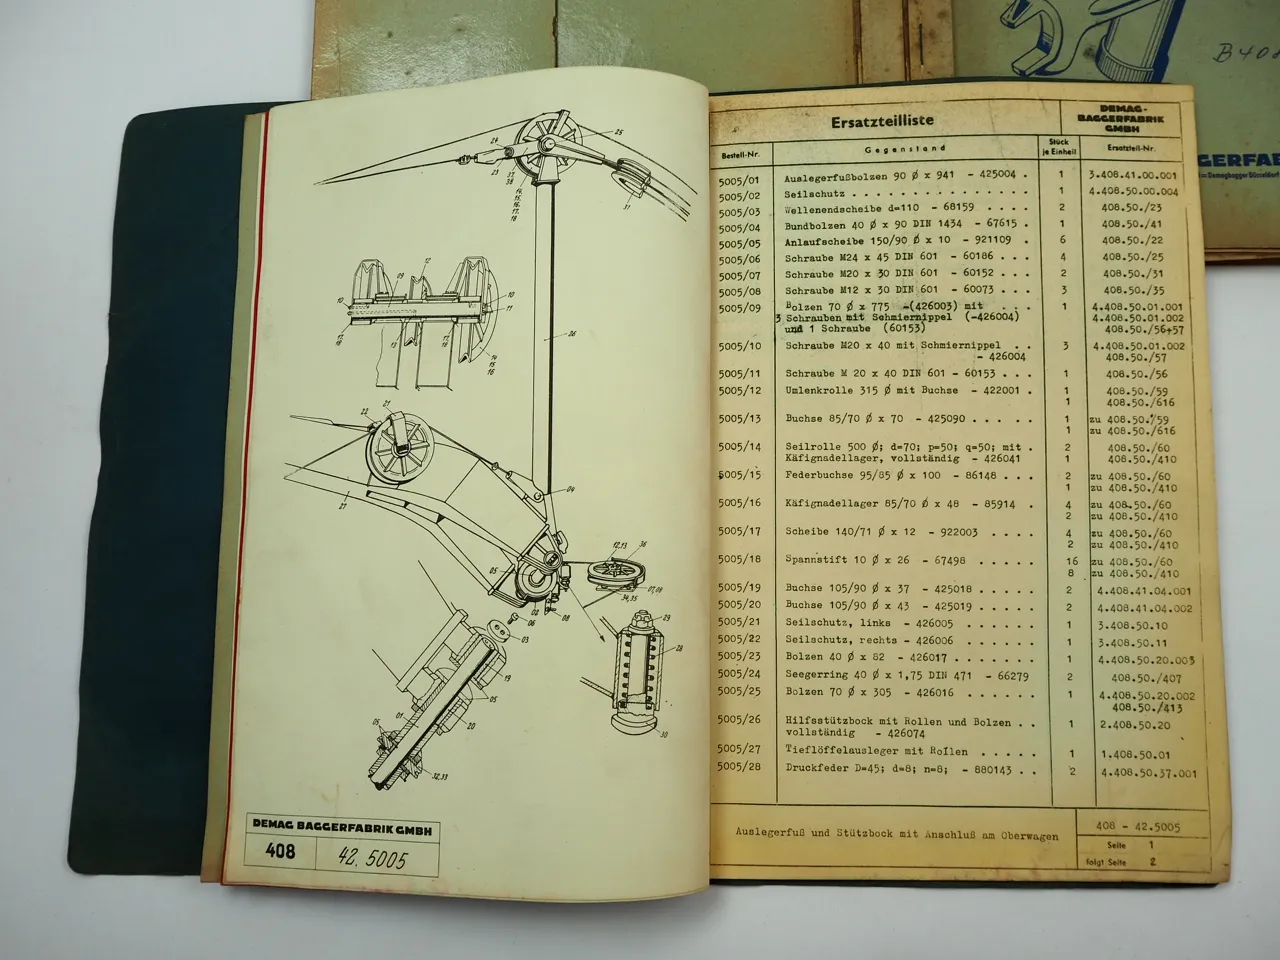 B408
GERFAB
Demagbagger Düsseldorf
24
25
23
37.
38
14.
15.
16.
17.
18
31
09
12
10
10
11
17.
18
13
17.
18
14
15
16
26
22
21
27
04
05
02
08
06
03
12,13
36
07,09
34,35
29
28
30
19
05
20
01
05
32,33
DEMAG BAGGERFABRIK GMBH
408
42.5005
Ersatzteilliste
DEMAG-
BAGGERFABRIK
GMBH
Bestell-Nr.
Gegenstand
Stück
je Einheil
Ersatzteil-Nr.
5005/01 Auslegerfußbolzen 90 Ø x 941 - 425004 . 1 3.408.41.00.001
5005/02 Seilschutz . . . . . . . . . . . . . . . 1 4.408.50.00.004
5005/03 Wellenendscheibe d=110 - 68159 . . . . 2 408.50./23
5005/04 Bundbolzen 40 Ø x 90 DIN 1434 - 67615 . 1 408.50./41
5005/05 Anlaufscheibe 150/90 Ø x 10 - 921109 . 6 408.50./22
5005/06 Schraube M24 x 45 DIN 601 - 60186 . . . 4 408.50./25
5005/07 Schraube M20 x 30 DIN 601 - 60152 . . . 2 408.50./31
5005/08 Schraube M12 x 30 DIN 601 - 60073 . . . 3 408.50./35
5005/09 Bolzen 70 Ø x 775 -(426003) mit . . . 1 4.408.50.01.001
3 Schrauben mit Schmiernippel (-426004) 4.408.50.01.002
und 1 Schraube (60153) 408.50./56+57
5005/10 Schraube M20 x 40 mit Schmiernippel . . 3 4.408.50.01.002
- 426004 408.50./57
5005/11 Schraube M 20 x 40 DIN 601 - 60153 . . . 1 408.50./56
5005/12 Umlenkrolle 315 Ø mit Buchse - 422001 . 1 408.50./59
1 408.50./616
5005/13 Buchse 85/70 Ø x 70 - 425090 . . . . 1 zu 408.50./59
1 zu 408.50./616
5005/14 Seilrolle 500 Ø; d=70; p=50; q=50; mit 2 408.50./60
Käfignadellager, vollständig - 426041 1 408.50./410
5005/15 Federbuchse 95/85 Ø x 100 - 86148 . . . 2 zu 408.50./60
1 zu 408.50./410
5005/16 Käfignadellager 85/70 Ø x 48 - 85914 . 4 zu 408.50./60
2 zu 408.50./410
5005/17 Scheibe 140/71 Ø x 12 - 922003 . . . . 4 zu 408.50./60
2 zu 408.50./410
5005/18 Spannstift 10 Ø x 26 - 67498 . . . . . 16 zu 408.50./60
8 zu 408.50./410
5005/19 Buchse 105/90 Ø x 37 - 425018 . . . . 2 4.408.41.04.001
5005/20 Buchse 105/90 Ø x 43 - 425019 . . . . 2 4.408.41.04.002
5005/21 Seilschutz, links - 426005 . . . . . . 1 3.408.50.10
5005/22 Seilschutz, rechts - 426006 . . . . . . 1 3.408.50.11
5005/23 Bolzen 40 Ø x 82 - 426017 . . . . . . . 1 4.408.50.20.003
5005/24 Seegerring 40 Ø x 1,75 DIN 471 - 66279 2 408.50./407
5005/25 Bolzen 70 Ø x 305 - 426016 . . . . . . 1 4.408.50.20.002
408.50./413
5005/26 Hilfsstützbock mit Rollen und Bolzen . . 1 2.408.50.20
vollständig - 426074
5005/27 Tieflöffelausleger mit Rollen . . . . . 1 1.408.50.01
5005/28 Druckfeder D=45; d=8; n=8; - 880143 . . 2 4.408.50.37.001
Auslegerfuß und Stützbock mit Anschluß am Oberwagen
408 - 42.5005
Seite 1
folgt Seite 2